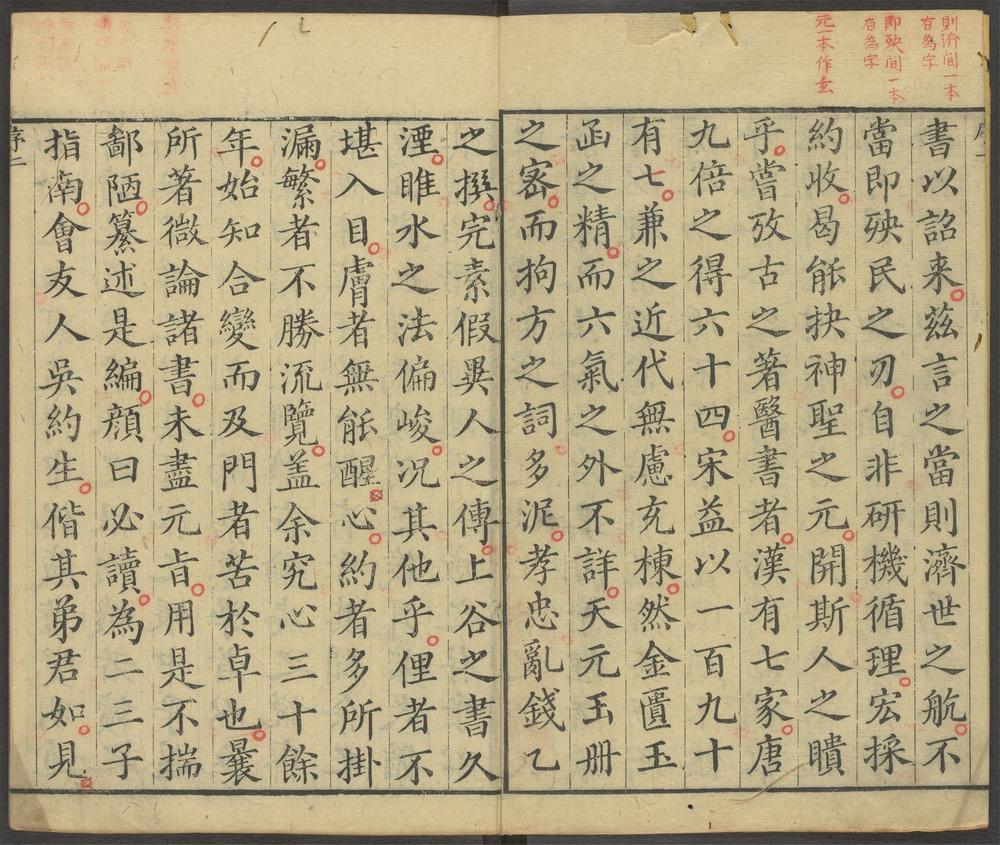 則濟間一本
有為字
即殃间一本
有為字
元一本作玄
書以詔来茲言之當則濟世之航不
當即殃民之刃自非研機循理宏採
約收曷能抉神聖之元開斯人之瞶
乎嘗攷古之著醫書者漢有七家唐
九倍之得六十四宋益以一百九十
有七兼之近代無慮充棟然金匱玉
函之精而六氣之外不詳天元玉册
之宻而拘方之詞多泥孝忠亂錢乙
之撰完素假異人之傳上谷之書久
湮睢水之法偏峻况其他乎俚者不
堪入目膚者無能醒心約者多所掛
漏繁者不勝流覽盖余究心三十餘
年始知合變而及門者苦於卓也曩
所著微論諸書未盡元旨用是不揣
鄙陋纂述是編顏曰必讀為二三子
指南會友人吳約生偕其弟君如見
序二